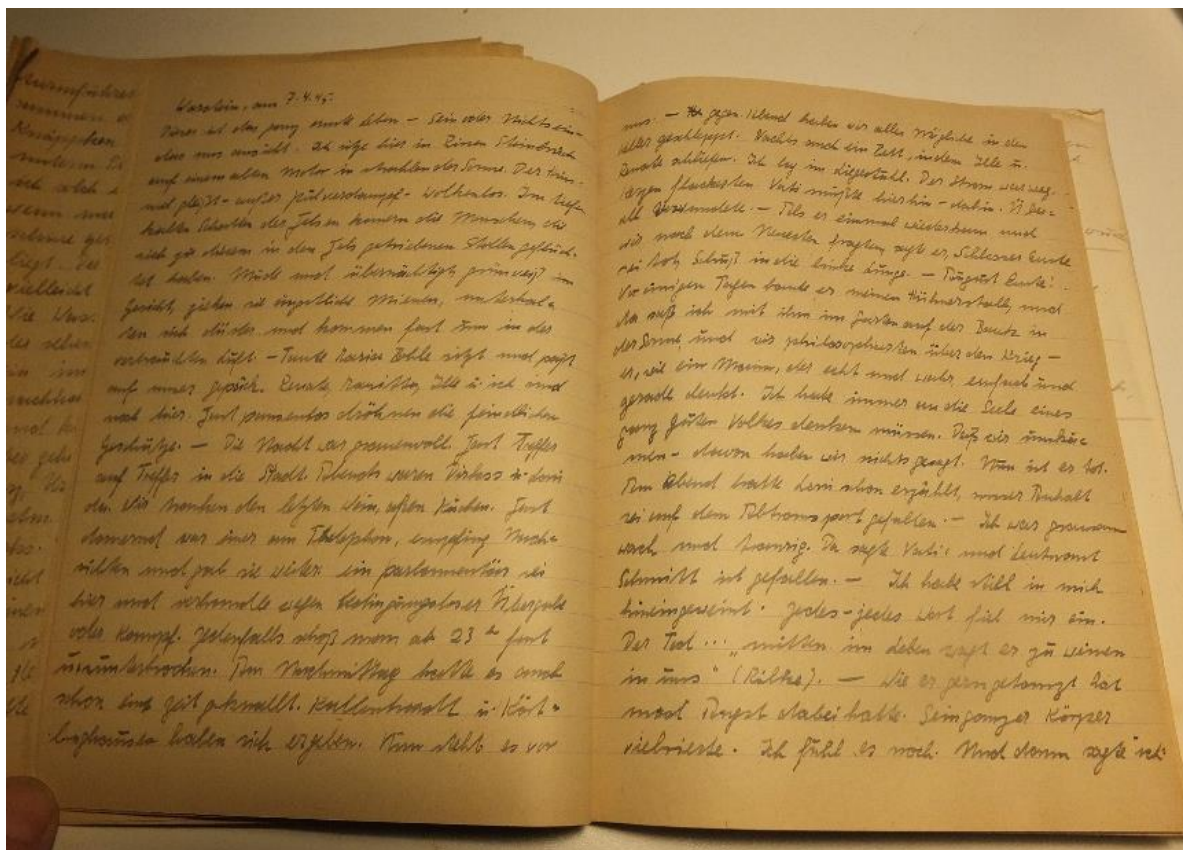 Warstein, am 7.4.45.
Dieses ist das ganz ernste Leben – Sein oder Nichtsein –
das uns ansieht. Ich sitze hier in einem Steinbruch
auf einem alten Motor in Strahlen der Sonne. Der Him-
mel gleißt – außer Pulverdampf – wolkenlos. Im tiefen
kalten Schatten des Felsen kauern die Menschen die
sich zu diesem in den Fels getriebenen Stollen geflüch-
tet haben. Müde und übernächtigt, grünweiß im
Gesicht, ziehen sie ängstliche Mienen, unterhal-
ten sich düster und kommen fast um in der
verbrauchten Luft. – Tante Maria sitzt und paßt
auf unser Gepäck. Renate, Ille u. ich sind
noch hier. Fast pausenlos dröhnen die feindlichen
Geschütze. – Die Nacht war grauenvoll. Fast Treffer
auf Treffer in die Stadt. Abends waren
da. Wir tranken den letzten Wein, aßen Kuchen. Fast
dauernd war einer am Telephon, empfing Nach-
richten und gab sie weiter: ein Parlamentär sei
hier und verhandle wegen bedingungsloser Übergabe
oder Kampf. Jedenfalls schoß man ab 23 h fast
ununterbrochen. Am Nachmittag hatte es auch
schon eine Zeit geknallt. Kallenhardt u. Kört-
linghausen haben sich ergeben. Nun steht es vor
uns. – gegen Abend haben wir alles Mögliche in den
Keller geschleppt. Nachts noch ein Bett, in dem Ille u.
Renate schliefen. Ich lag im Liegestuhl. Der Strom war weg.
Kerzen flackerten. Vati mußte hierhin – dahin. Über-
all Verwundete. – Als er einmal wiederkam und
wir nach dem Neuesten fragten sagte er, Schlosser
sei tot, Schuß in die linke Lunge. – August
Vor einigen Tagen baute er meinen Hühnerstall, und
da saß ich mit ihm im Garten auf der Bank in
der Sonne, und wir philosophierten über den Krieg –
er, wie ein Mann, der echt und wahr, einfach und
gerade denkt. Ich habe immer an die Seele eines
ganz guten Volkes denken müssen. Daß wir umkä-
men – davon haben wir nichts gesagt. Nun ist er tot.
Am Abend hatte Leni schon erzählt, unser Anhalt
sei auf dem Abtransport gefallen. – Ich war grausam
wach und traurig. Da sagte Vati: und Leutnant
Schmitt ist gefallen. – Ich habe still in mich
hineingeweint. Jedes – jedes Wort fiel mir ein.
Der Tod ... „mitten im Leben wagt er zu weinen
in uns" (Rilke). – Wie er gern getanzt hat
und Angst dabei hatte. Sein ganzer Körper
vibrierte. Ich fühl es noch. Und dann sagte ich